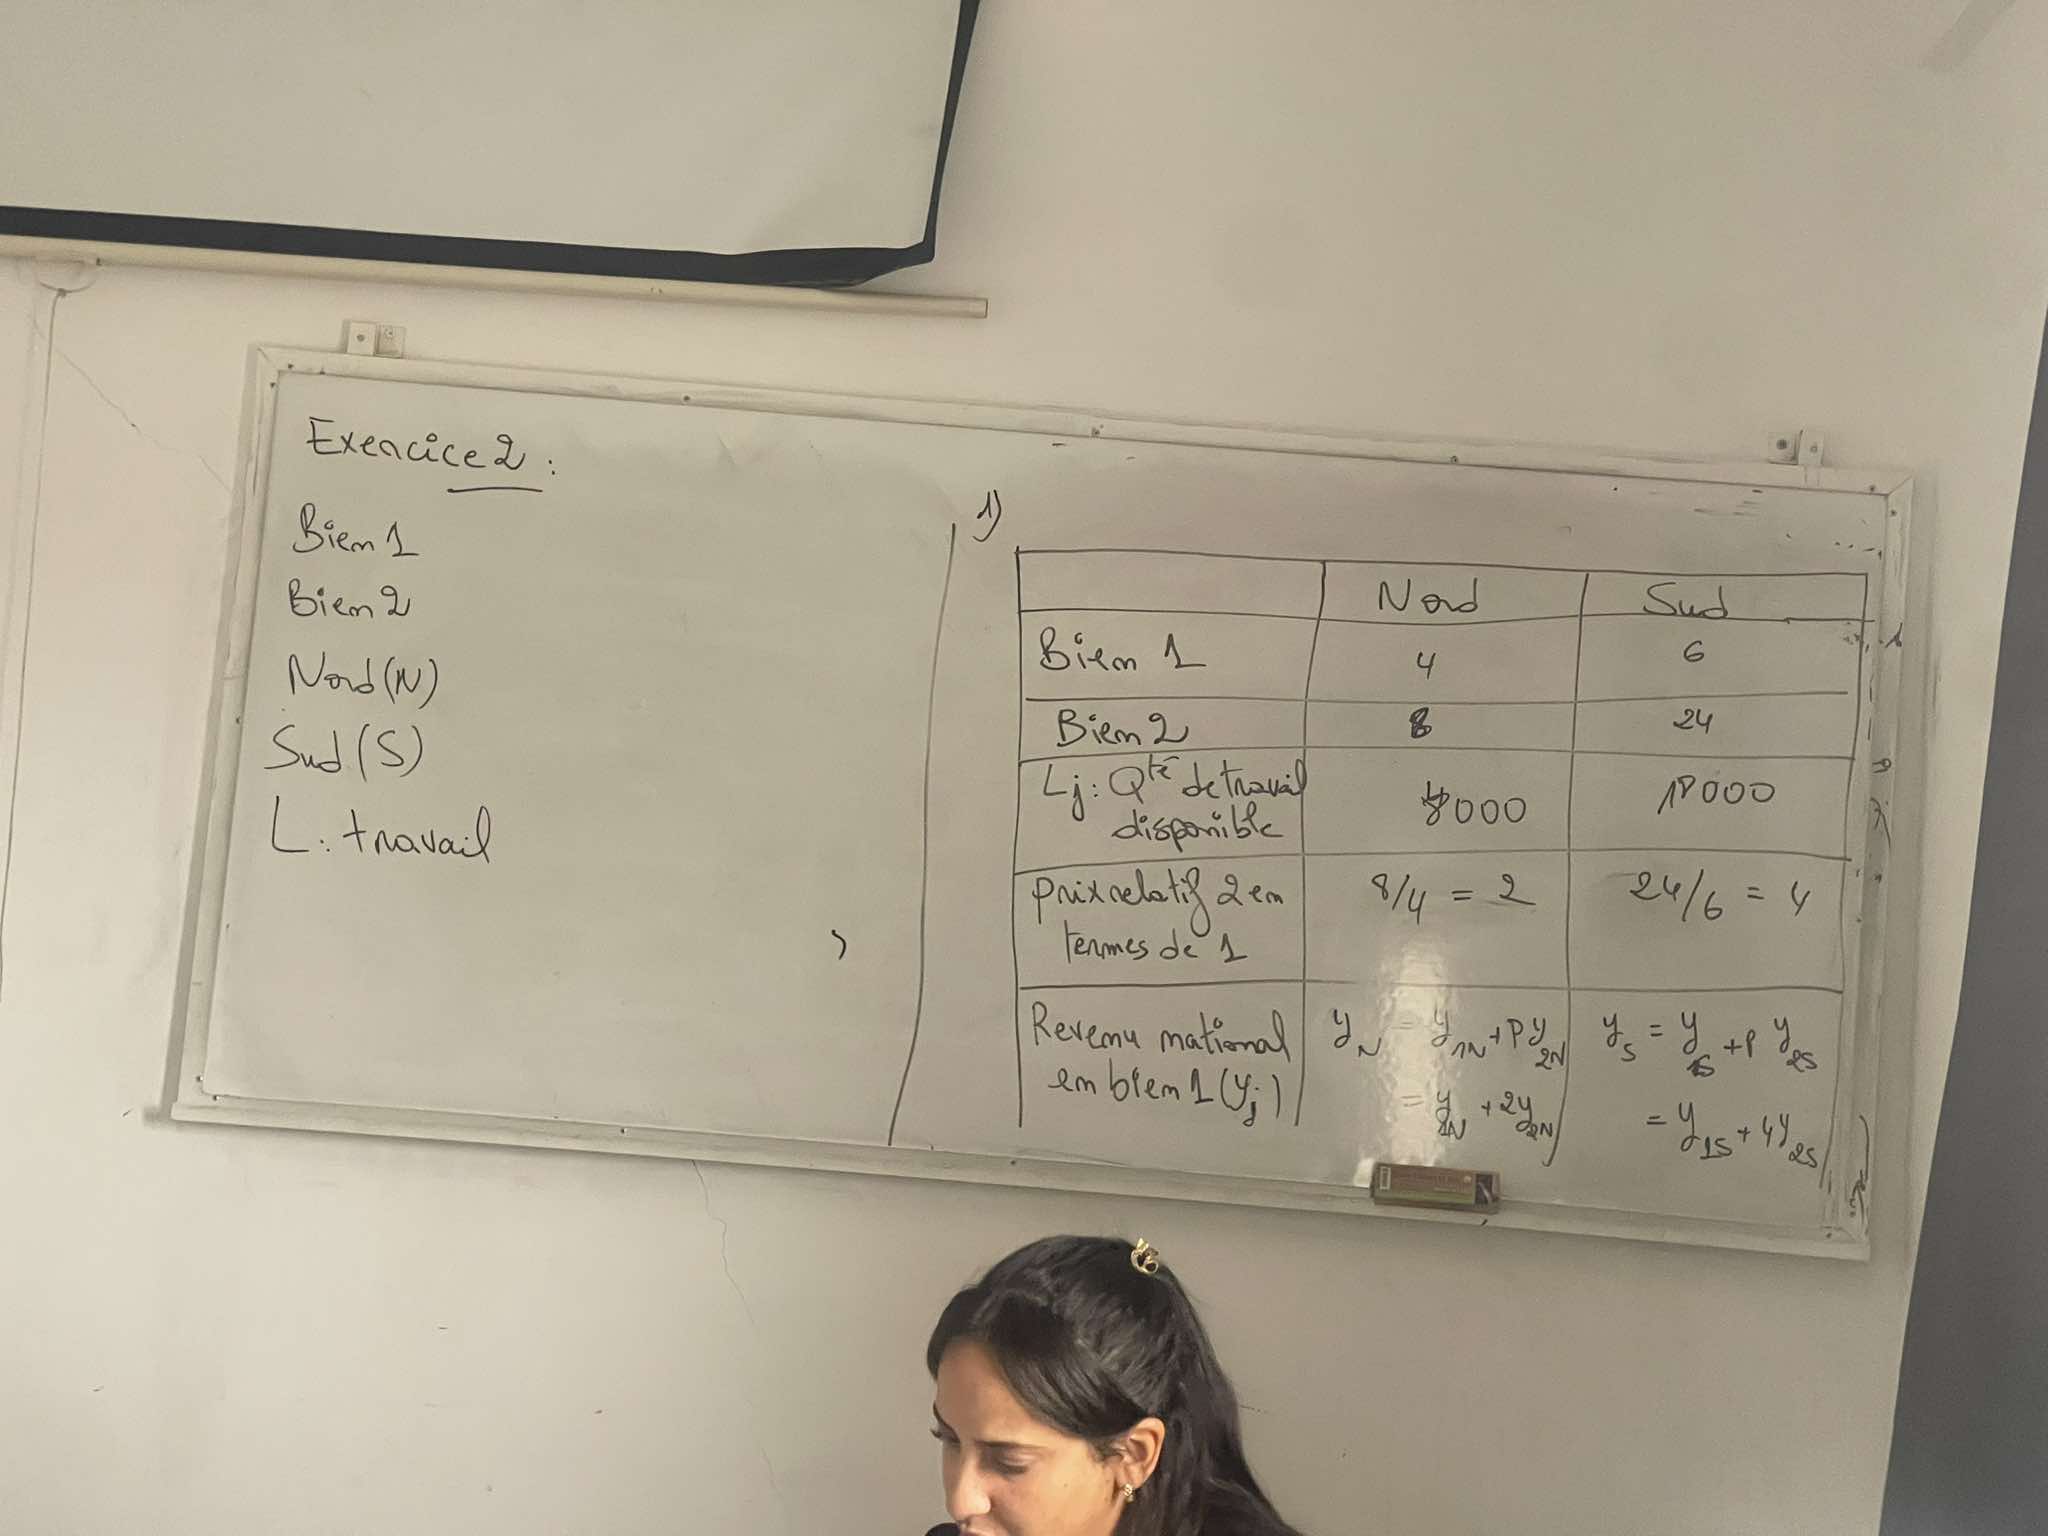 Exercice 2 :
Bien 1
Bien 2
Nord (N)
Sud (S)
L : travail
1)
Nord Sud
Bien 1 4 6
Bien 2 8 24
Lj : Qté de travail
disponible 000 18000
prix relatif 2 en
termes de 1 8/4 = 2 24/6 = 4
Revenu national
en bien 1 (yj)
yN = y1N + P y2N
= y1N + 2y2N
yS = y1S + P y2S
= y1S + 4y2S